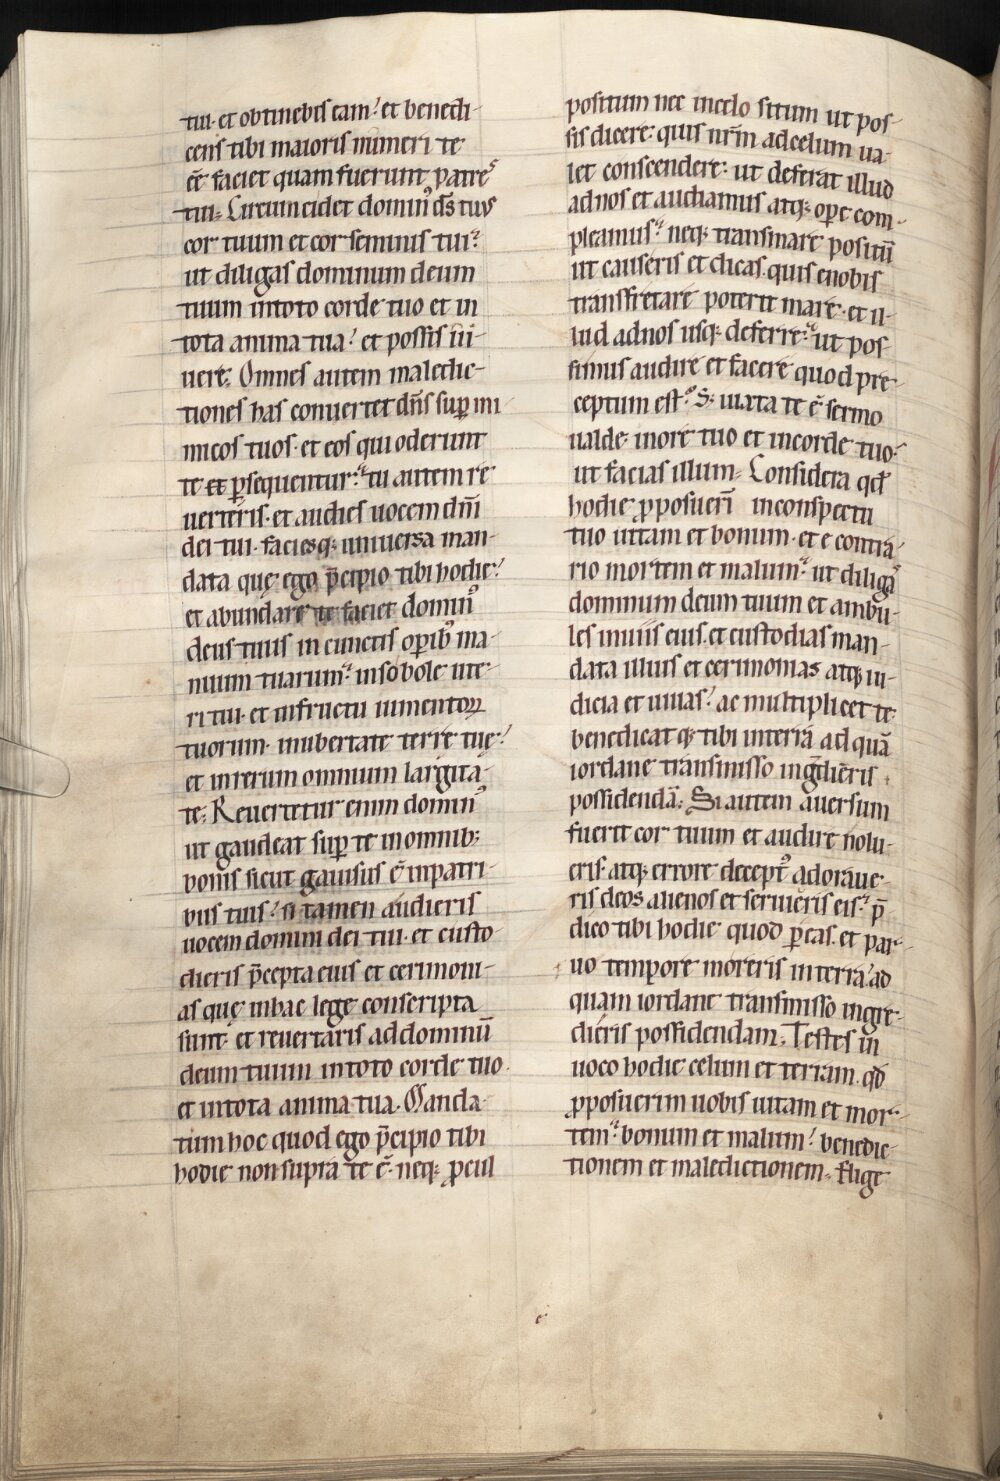 tui· et obtinebis eam? et benedi-
cens tibi maioris numeri te
eē faciet quam fuerunt patreˢ
tui. Circumcidet dominꝰ ds̄ tuus
cor tuum et cor seminis tui?
ut diligas dominum deum
tuum in toto corde tuo et in
tota anima tua? et possis ui-
uere. Omnes autem maledic-
tiones has conuertet dn̄s suꝑ ini
micos tuos· et eos qui oderunt
te et ꝑsequentur. tu autem re-
uerteris· et audies uocem dn̄i
dei tui· faciesq; uniuersa man-
data quę ego p̄cipio tibi hodie?
et abundare te faciet dominꝰ
deus tuus in cunctis oꝑibꝰ ma-
nuum tuarum· in sobole ute-
ri tui· et in fructu iumentoꝝ
tuorum· in ubertate terre tuę?
et in rerum omnium largita-
te. Reuertetur enim dominꝰ
ut gaudeat suꝑ te in omnib;
bonis sicut gauisus ē in patri-
bus tuis? si tamen audieris
uocem domini dei tui· et custo-
dieris p̄cepta eius et cerimoni-
as que in hac lege conscripta
sunt· et reuertaris ad dominū
deum tuum in toto corde tuo
et in tota anima tua. Manda-
tum hoc quod ego p̄cipio tibi
hodie non supra te ē· neq; ꝓcul
positum nec in celo situm ut pos-
sis dicere· quis nr̄m ad celum ua-
let conscendere· ut deferat illud
ad nos et audiamus atq; oꝑe com-
pleamus? neq; transmare positū
ut causeris et dicas· quis e nobis
transfretare poterit mare· et il-
lud ad nos usq; deferre? ut pos-
simus audire et facere quod pre-
ceptum est? S; iuxta te ē sermo
ualde· in ore tuo et in corde tuo?
ut facias illum. Considera qd̄
hodie ꝓposuerī in conspectu
tuo uitam et bonum· et e contra-
rio mortem et malum? ut diligaˢ
dominum deum tuum et ambu-
les in uiis eius· et custodias man-
data illius et cerimonias atq; iu-
dicia et uiuas? ac multiplicet te
benedicatq; tibi in terra ad quā
iordane transmisso ingredieris
possidendā. Si autem auersum
fuerit cor tuum et audire nolu-
eris· atq; errore deceptꝰ adoraue-
ris deos alienos et serueris eis? p̄
dico tibi hodie quod ꝑeas· et par-
uo tempore moreris in terra? ad
quam iordane transmisso ingre-
dieris possidendam. Testes in
uoco hodie celum et terram· qd̄
ꝓposuerim uobis uitam et mor-
tem? bonum et malum? benedic-
tionem et maledictionem. Elige